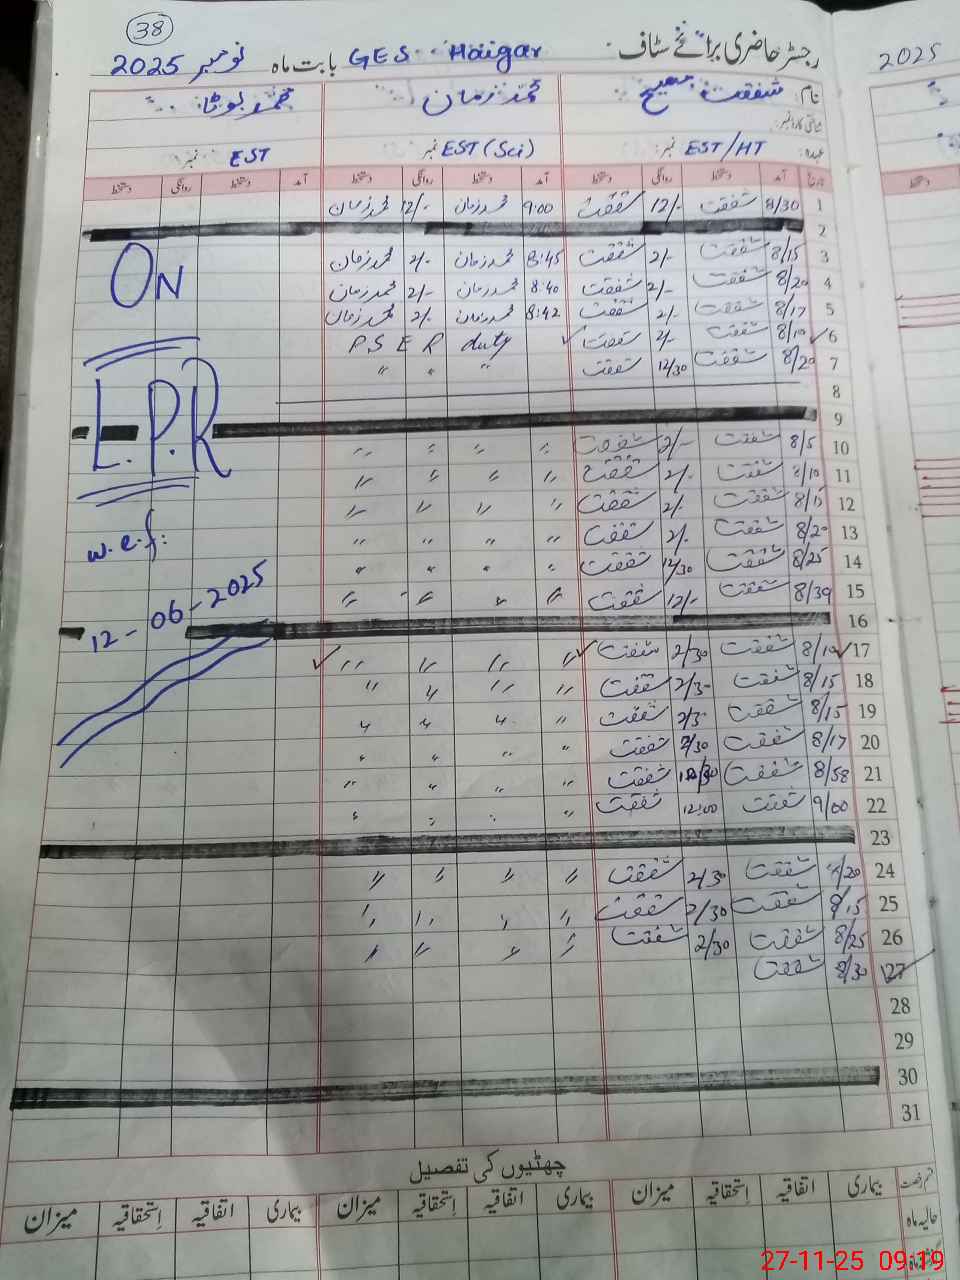 38
رجسٹر حاضری برائے سٹاف GES Haigar بابت ماہ نومبر 2025
2025
نام: شفقت مسیح محمد زمان محمد بوٹا
شناختی کارڈ نمبر:
عہدہ: EST/HT نمبر: EST (Sci) نمبر EST نمبر:
تاریخ آمد دستخط روانگی دستخط آمد دستخط روانگی دستخط آمد دستخط روانگی دستخط
1 8/30 شفقت 12/- شفقت 9:00 محمد زمان 12/- محمد زمان
2
3 8/15 شفقت 2/- شفقت 8:45 محمد زمان 2/- محمد زمان
4 8/20 شفقت 2/- شفقت 8:40 محمد زمان 2/- محمد زمان
5 8/17 شفقت 2/- شفقت 8:42 محمد زمان 2/- محمد زمان
6 8/10 شفقت 2/- شفقت P S E R duty
7 8/20 شفقت 12/30 شفقت " " "
8
9
10 8/5 شفقت 2/- شفقت " " " "
11 8/10 شفقت 2/- شفقت " " " "
12 8/15 شفقت 2/- شفقت " " " "
13 8/20 شفقت 2/- شفقت " " " "
14 8/25 شفقت 12/30 شفقت " " " "
15 8/30 شفقت 12/- شفقت " " " "
16
17 8/10 شفقت 2/30 شفقت " " " "
18 8/15 شفقت 2/30 شفقت " " " "
19 8/15 شفقت 2/3 شفقت " " " "
20 8/17 شفقت 2/30 شفقت " " " "
21 8/58 شفقت شفقت " " " "
22 9/00 شفقت 12:00 شفقت " " " "
23
24 شفقت 2/30 شفقت " " " "
25 8/15 شفقت 2/30 شفقت " " " "
26 8/25 شفقت 2/30 شفقت " " " "
27 8/30 شفقت
28
29
30
31
ON
L.P.R
w.e.f:
12-06-2025
چھٹیوں کی تفصیل
قسم رخصت بیماری اتفاقیہ استحقاقیہ میزان بیماری اتفاقیہ استحقاقیہ میزان بیماری اتفاقیہ استحقاقیہ میزان
حالیہ ماہ
27-11-25 09:19